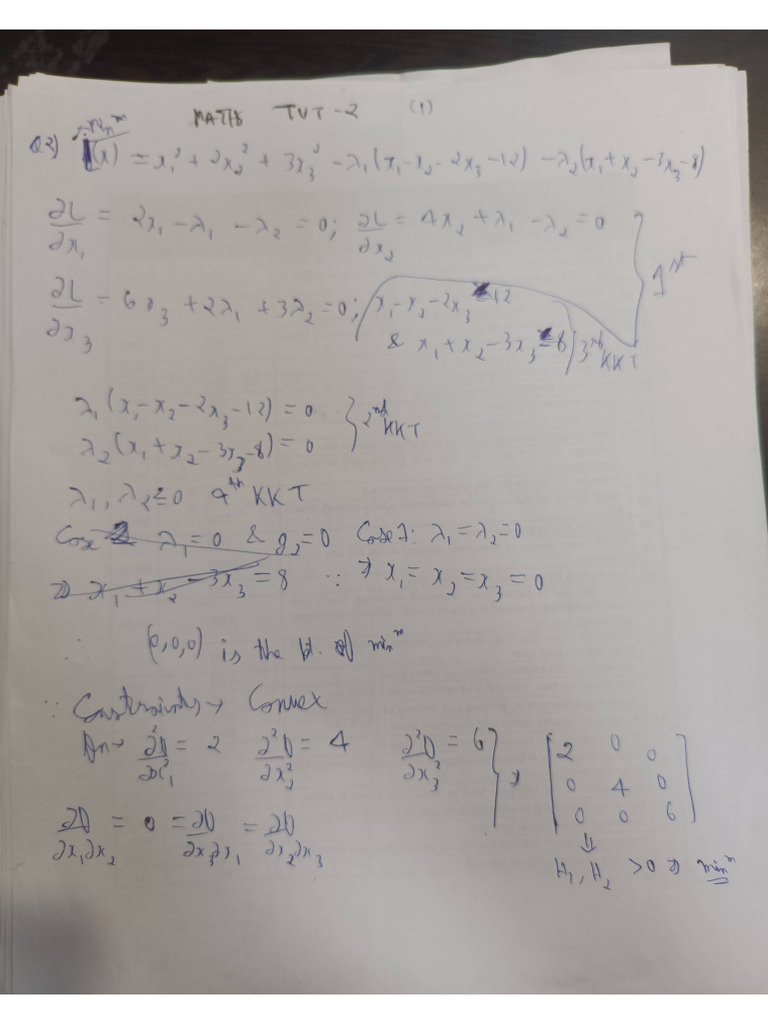 MATHS TUT-2 (1)
Q2) minᵐ
L(x) = x₁² + 2x₂² + 3x₃² - λ₁(x₁-x₂-2x₃-12) - λ₂(x₁+x₂-3x₃-8)
∂L/∂x₁ = 2x₁ - λ₁ - λ₂ = 0; ∂L/∂x₂ = 4x₂ + λ₁ - λ₂ = 0 } 1st
∂L/∂x₃ = 6x₃ + 2λ₁ + 3λ₂ = 0; x₁-x₂-2x₃ 12
& x₁+x₂-3x₃ 8 3rd KKT
λ₁(x₁-x₂-2x₃-12) = 0
λ₂(x₁+x₂-3x₃-8) = 0 } 2nd KKT
λ₁, λ₂ ≤ 0 4th KKT
Case 2 λ₁ = 0 & g₂ = 0 Case 1: λ₁ = λ₂ = 0
⇒ x₁ + x₂ - 3x₃ = 8 ∵ ⇒ x₁ = x₂ = x₃ = 0
∴ (0,0,0) is the pt. of minᵐ
∵ Constraints → Convex
∂²f/∂x₁² = 2 ∂²f/∂x₂² = 4 ∂²f/∂x₃² = 6 } ⇒ [2 0 0
0 4 0
0 0 6]
∂f/∂x₁∂x₂ = 0 = ∂f/∂x₃∂x₁ = ∂f/∂x₂∂x₃
⇓
H₁, H₂ > 0 ⇒ minᵐ